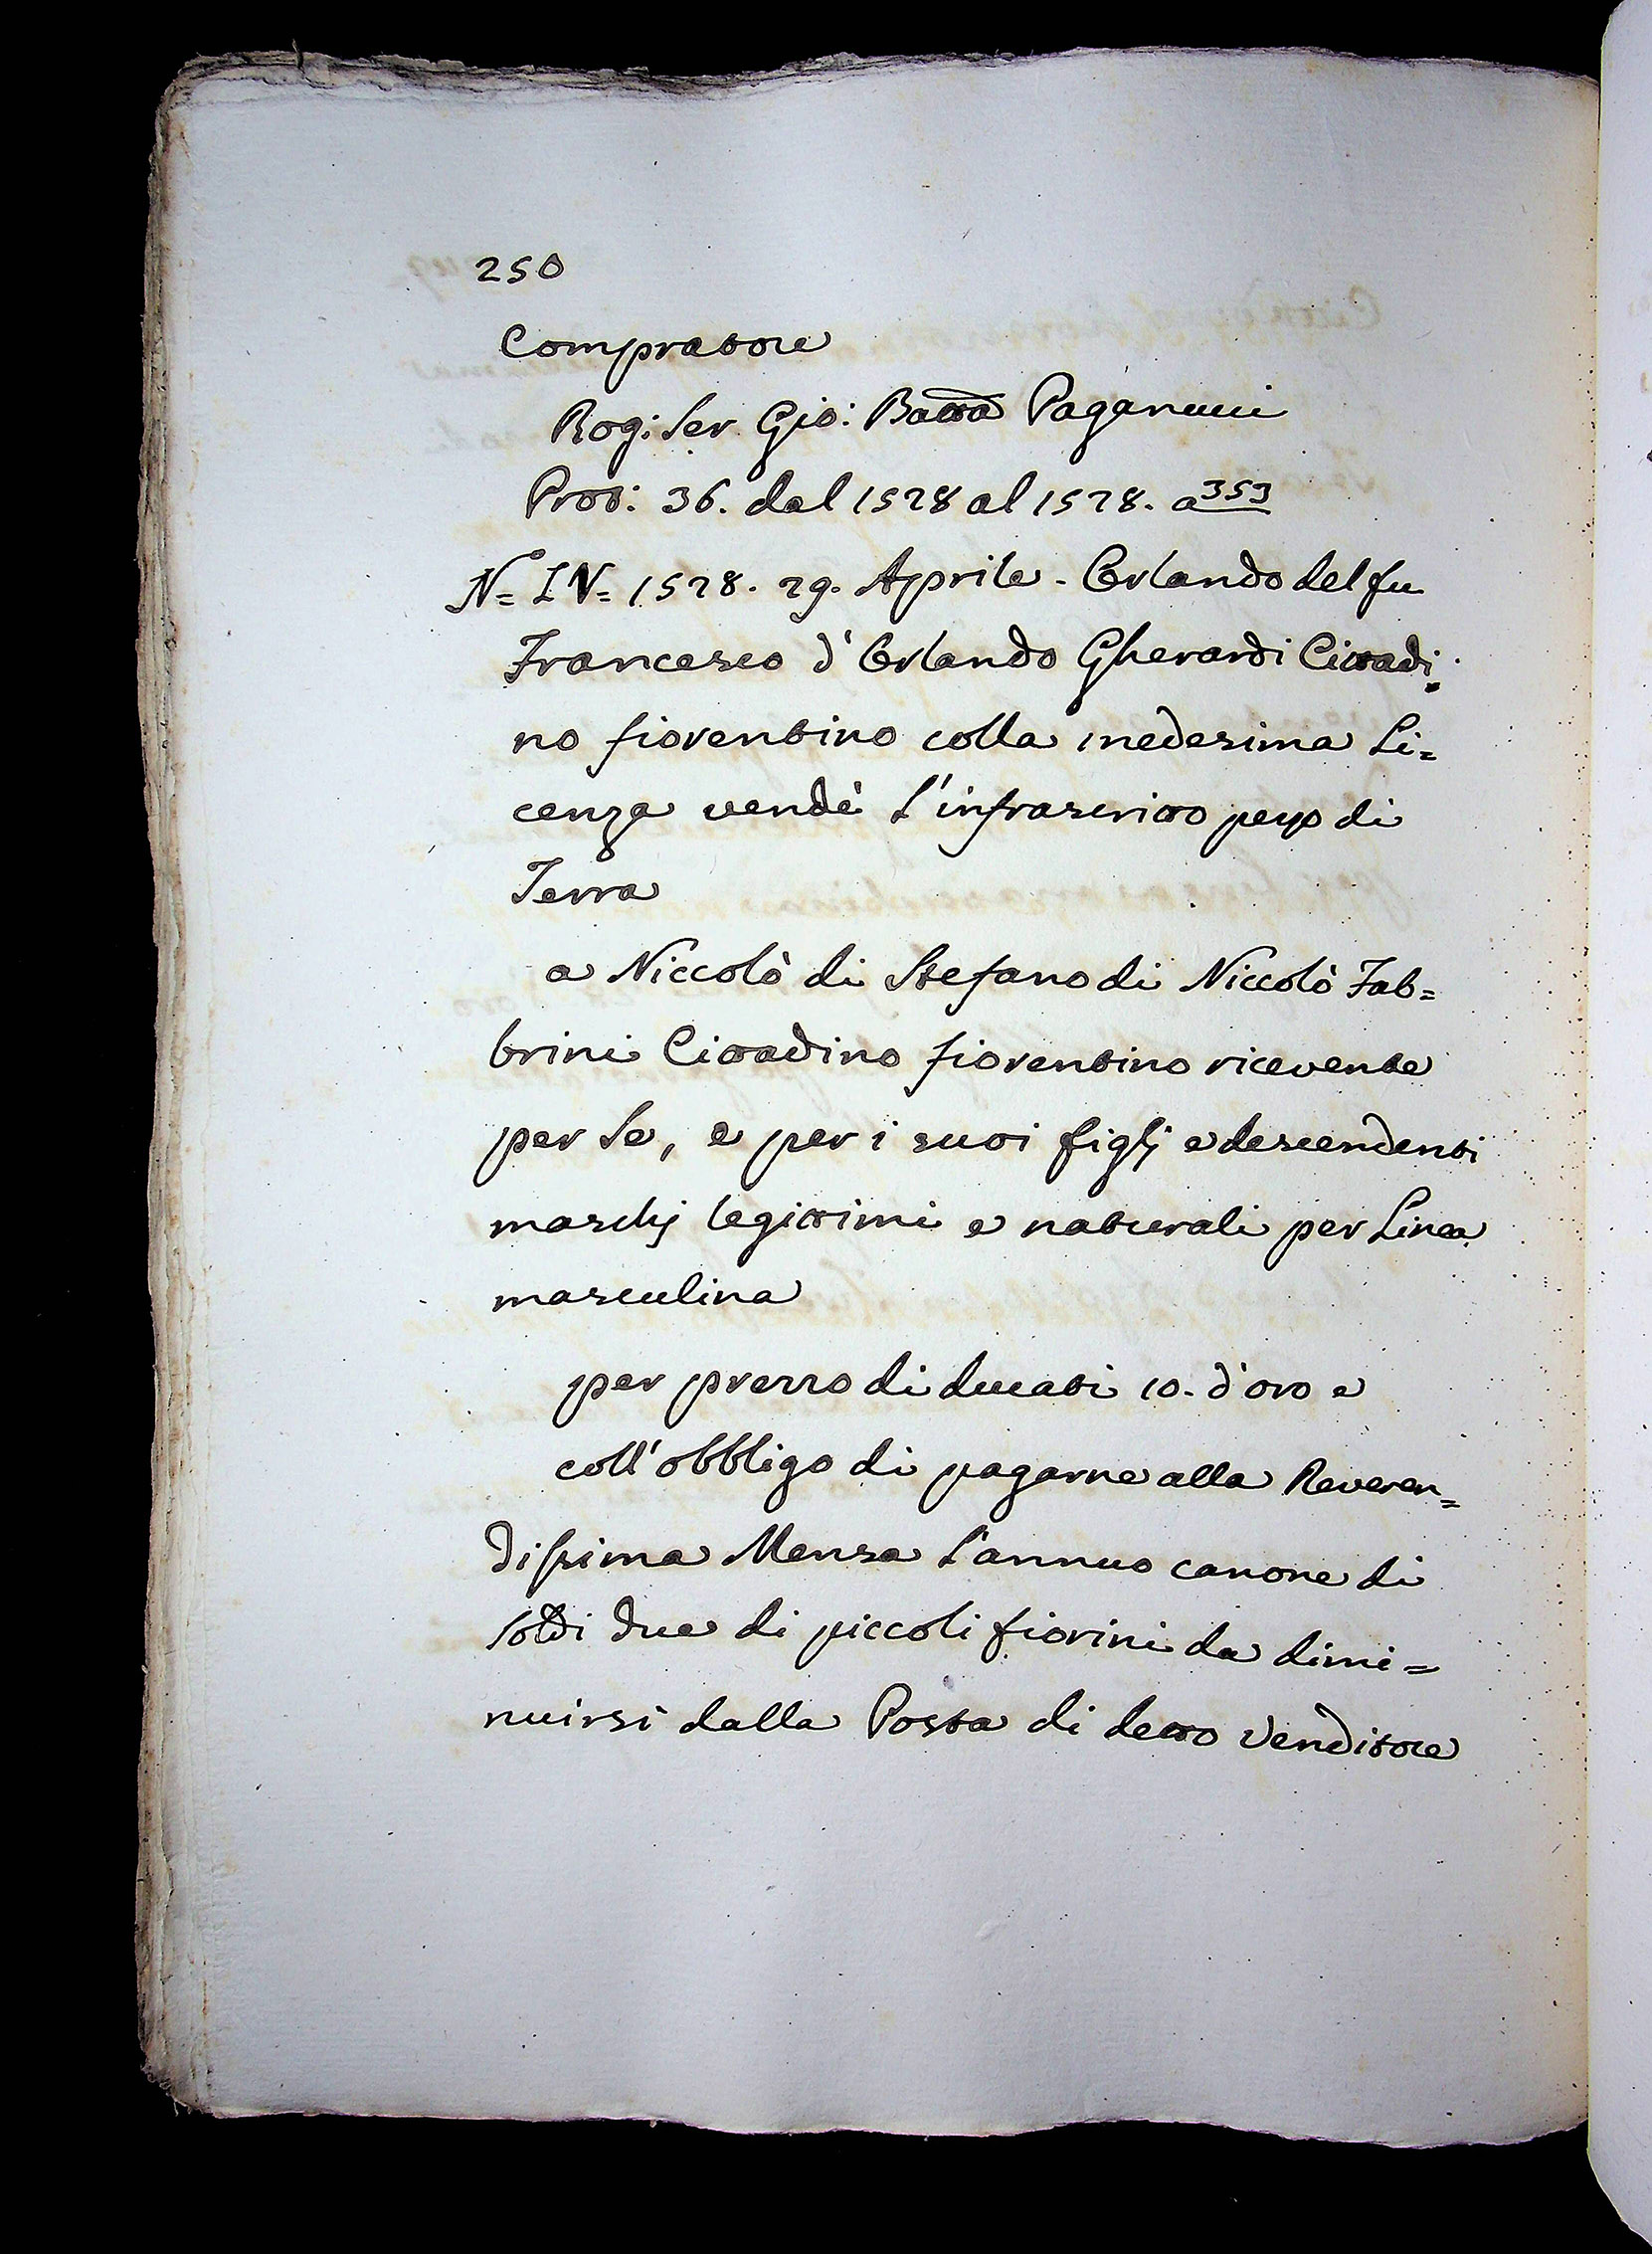 250
Compratore
Rog: Ser Gio: Batta Paganucci
Prot: 36. dal 1528 al 1528. a 353
N= IV= 1528. 29. Aprile. Orlando del fu
Francesco d'Orlando Gherardi Cittadi=
no fiorentino colla medesima Li=
cenza vendè l'infrascritto pezzo di
Terra
a Niccolò di Stefano di Niccolò Fab=
brini Cittadino fiorentino ricevente
per Se, e per i suoi figlj e descendenti
maschj legittimi e naturali per Linea
masculina
per prezzo di ducati 10. d'oro e
coll'obbligo di pagarne alla Reveren=
dissima Mensa l'annuo canone di
Soldi due di piccoli fiorini da dimi=
nuirsi dalla Posta di detto Venditore